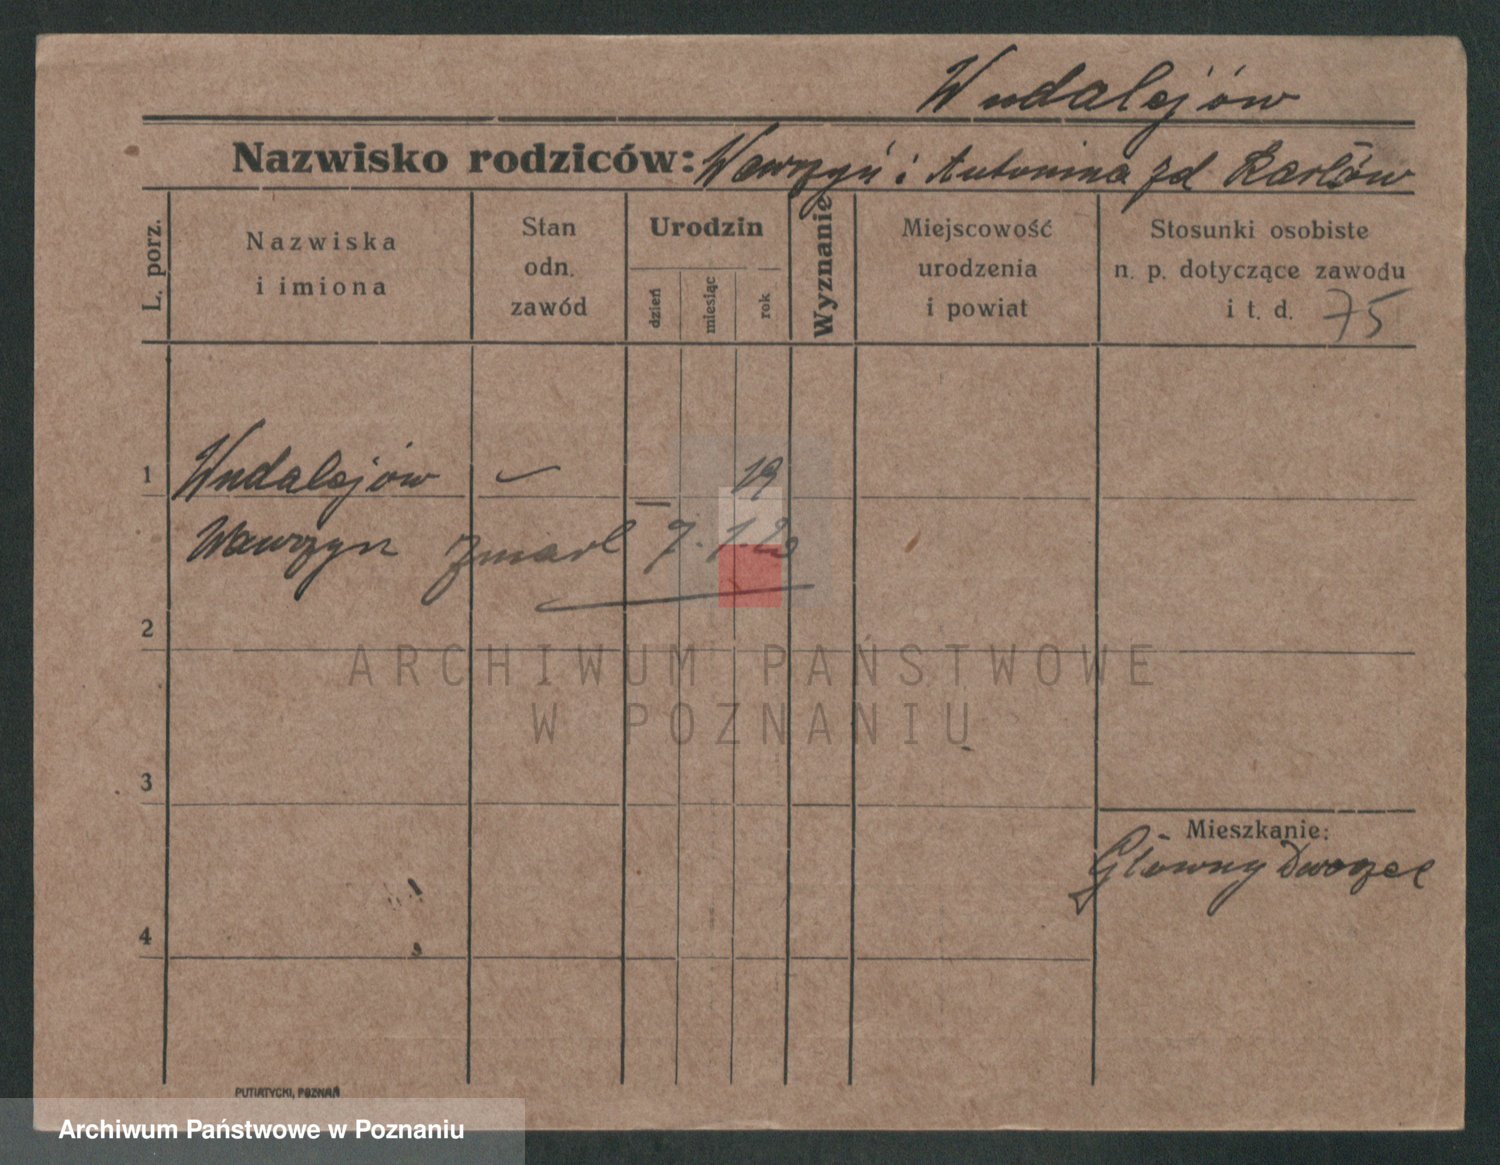 Wudalejów
Nazwisko rodziców: Wawrzyn i Antonina zd Karłów
L. porz.
Nazwiska
i imiona
Stan
odn.
zawód
Urodzin
dzień
miesiąc
rok
Wyznanie
Miejscowość
urodzenia
i powiat
Stosunki osobiste
n. p. dotyczące zawodu
i t. d. 75
1 Wudalejów — 19
Wawrzyn zmarł 7.1.20
2
3
4
Mieszkanie:
Główny Dworzec
PUTIATYCKI, POZNAŃ
ARCHIWUM PAŃSTWOWE
W POZNANIU
Archiwum Państwowe w Poznaniu